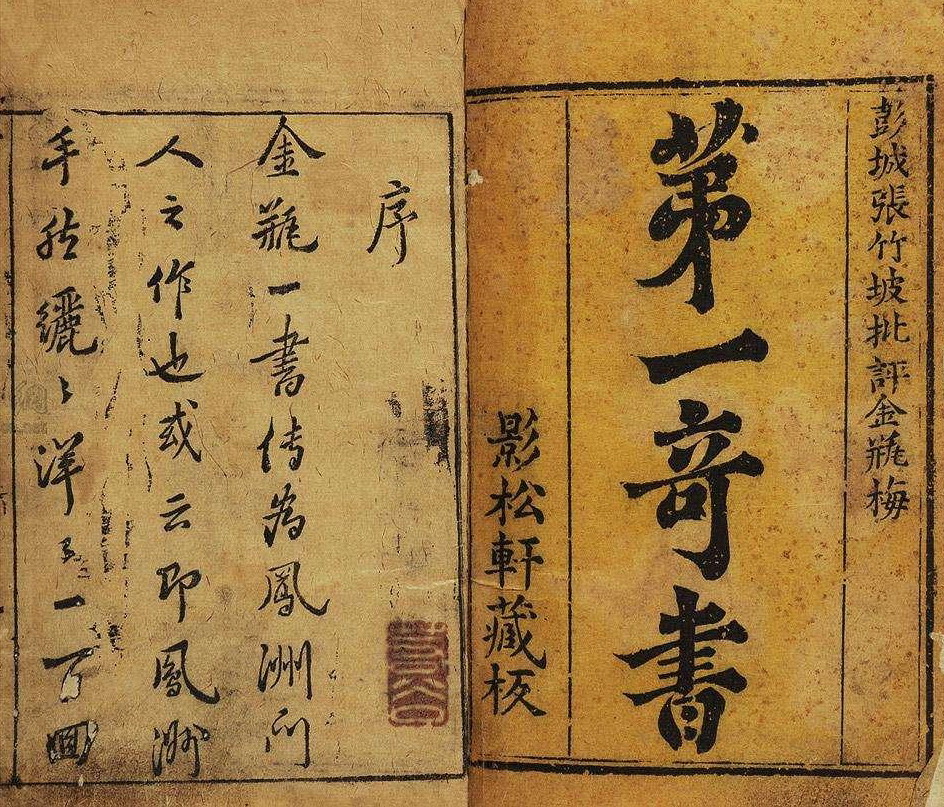 彭城張竹坡批評金瓶梅
苐一奇書
影松軒藏板
序
金瓶一書傳為鳳洲門
人之作也或云即鳳洲
手然纚〻洋〻一百回